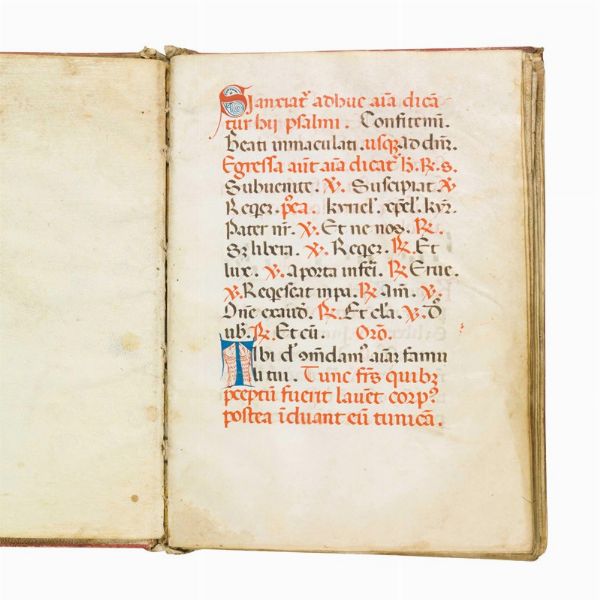 Si anxiat᷑ adhuc aīa dicā
tur hij psalmi. Confitemī.
Beati inmaculati. usq; ad dn̄m.
Egressa aūt aīa dicat᷑ h̄. ℟. s.
Subuenite. ℣. Suscipiat ℣
Requē. p̄ea. kyriel᷑. xp̄el᷑. kyr᷑.
Pater nr̄. ℣. Et ne nos. ℟.
Sȝ libera. ℣. Requē. ℟. Et
lux. ℣. a porta inferi. ℟ Erue.
℣. Reqescat in pa. ℟ am̄. ℣.
Dn̄e exaud̄. ℟. Et cla. ℣. D̄
ub. ℟. Et cū. Orō.
Tibi d᷑ 9mdam᷑ aīaȝ famu
li tui. Tunc frs̄ quibȝ
p̄ceptū fuerit lauēt corp9
postea īduant eū tunicā.